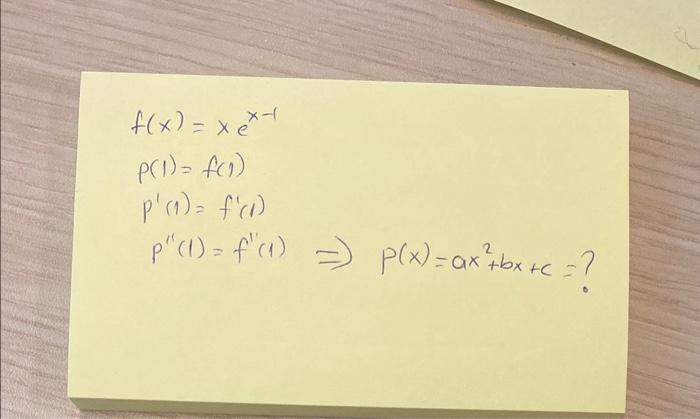 f(x) = x e^{x-1}
p(1) = f(1)
p'(1) = f'(1)
p''(1) = f''(1) ⇒ p(x) = ax^2+bx+c = ?